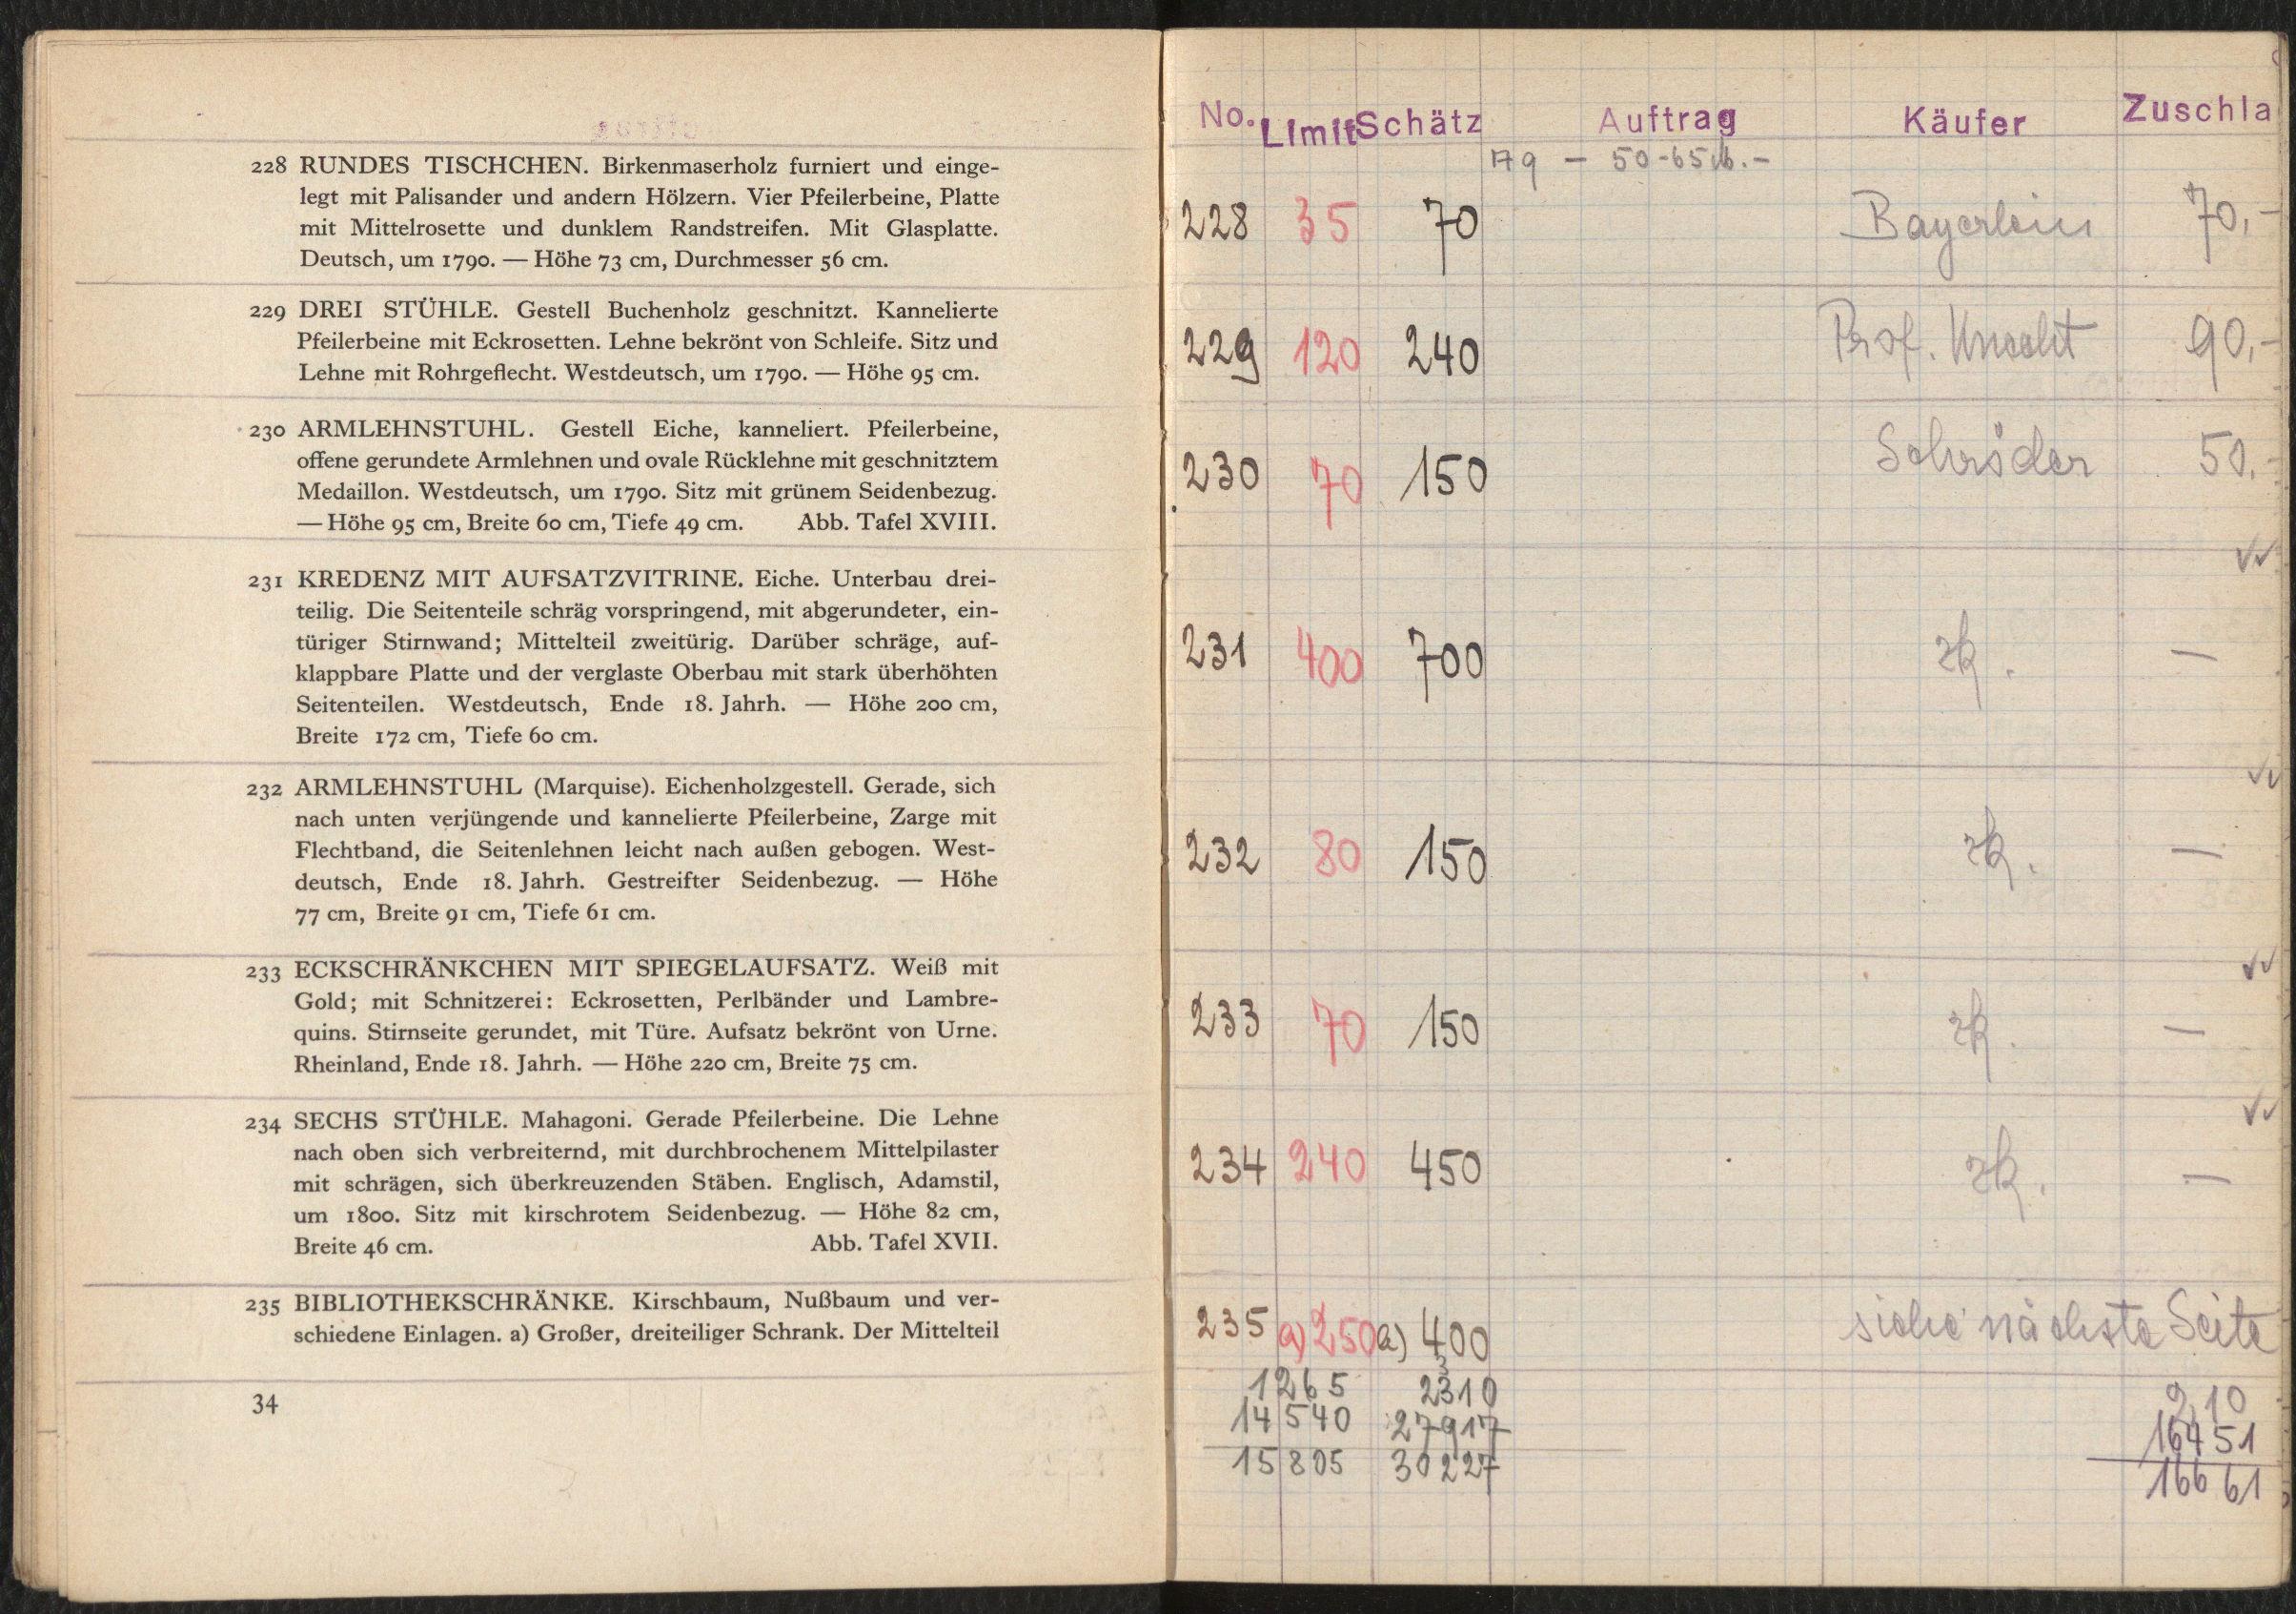 228 RUNDES TISCHCHEN. Birkenmaserholz furniert und einge-
legt mit Palisander und andern Hölzern. Vier Pfeilerbeine, Platte
mit Mittelrosette und dunklem Randstreifen. Mit Glasplatte.
Deutsch, um 1790. — Höhe 73 cm, Durchmesser 56 cm.
229 DREI STÜHLE. Gestell Buchenholz geschnitzt. Kannelierte
Pfeilerbeine mit Eckrosetten. Lehne bekrönt von Schleife. Sitz und
Lehne mit Rohrgeflecht. Westdeutsch, um 1790. — Höhe 95 cm.
230 ARMLEHNSTUHL. Gestell Eiche, kanneliert. Pfeilerbeine,
offene gerundete Armlehnen und ovale Rücklehne mit geschnitztem
Medaillon. Westdeutsch, um 1790. Sitz mit grünem Seidenbezug.
— Höhe 95 cm, Breite 60 cm, Tiefe 49 cm. Abb. Tafel XVIII.
231 KREDENZ MIT AUFSATZVITRINE. Eiche. Unterbau drei-
teilig. Die Seitenteile schräg vorspringend, mit abgerundeter, ein-
türiger Stirnwand; Mittelteil zweitürig. Darüber schräge, auf-
klappbare Platte und der verglaste Oberbau mit stark überhöhten
Seitenteilen. Westdeutsch, Ende 18. Jahrh. — Höhe 200 cm,
Breite 172 cm, Tiefe 60 cm.
232 ARMLEHNSTUHL (Marquise). Eichenholzgestell. Gerade, sich
nach unten verjüngende und kannelierte Pfeilerbeine, Zarge mit
Flechtband, die Seitenlehnen leicht nach außen gebogen. West-
deutsch, Ende 18. Jahrh. Gestreifter Seidenbezug. — Höhe
77 cm, Breite 91 cm, Tiefe 61 cm.
233 ECKSCHRÄNKCHEN MIT SPIEGELAUFSATZ. Weiß mit
Gold; mit Schnitzerei: Eckrosetten, Perlbänder und Lambre-
quins. Stirnseite gerundet, mit Türe. Aufsatz bekrönt von Urne.
Rheinland, Ende 18. Jahrh. — Höhe 220 cm, Breite 75 cm.
234 SECHS STÜHLE. Mahagoni. Gerade Pfeilerbeine. Die Lehne
nach oben sich verbreiternd, mit durchbrochenem Mittelpilaster
mit schrägen, sich überkreuzenden Stäben. Englisch, Adamstil,
um 1800. Sitz mit kirschrotem Seidenbezug. — Höhe 82 cm,
Breite 46 cm. Abb. Tafel XVII.
235 BIBLIOTHEKSCHRÄNKE. Kirschbaum, Nußbaum und ver-
schiedene Einlagen. a) Großer, dreiteiliger Schrank. Der Mittelteil
34
No. Limit Schätz Auftrag Käufer Zuschla
50-65
228 35 70 Bayerlein 70,-
229 120 240 Prof. Knecht 90,-
230 70 150 Schröder 50.-
231 400 700 zk. —
232 80 150 zk. —
233 70 150 zk. —
234 240 450 zk. —
235 a) 250 a) 400 siehe nächste Seite
1265 2310 210
14540 27917 16451
15805 30227 16661